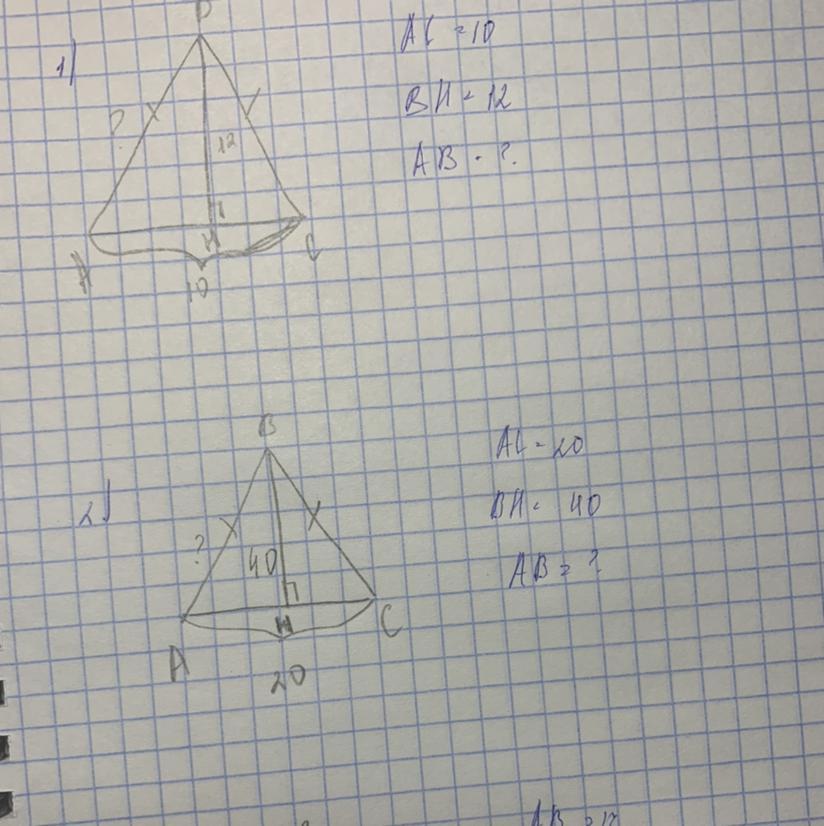 1)
B
AC = 10
BH = 12
AB - ?
?
12
H
A
C
10
2)
B
AC = 20
BH = 40
AB = ?
?
40
H
A
C
20